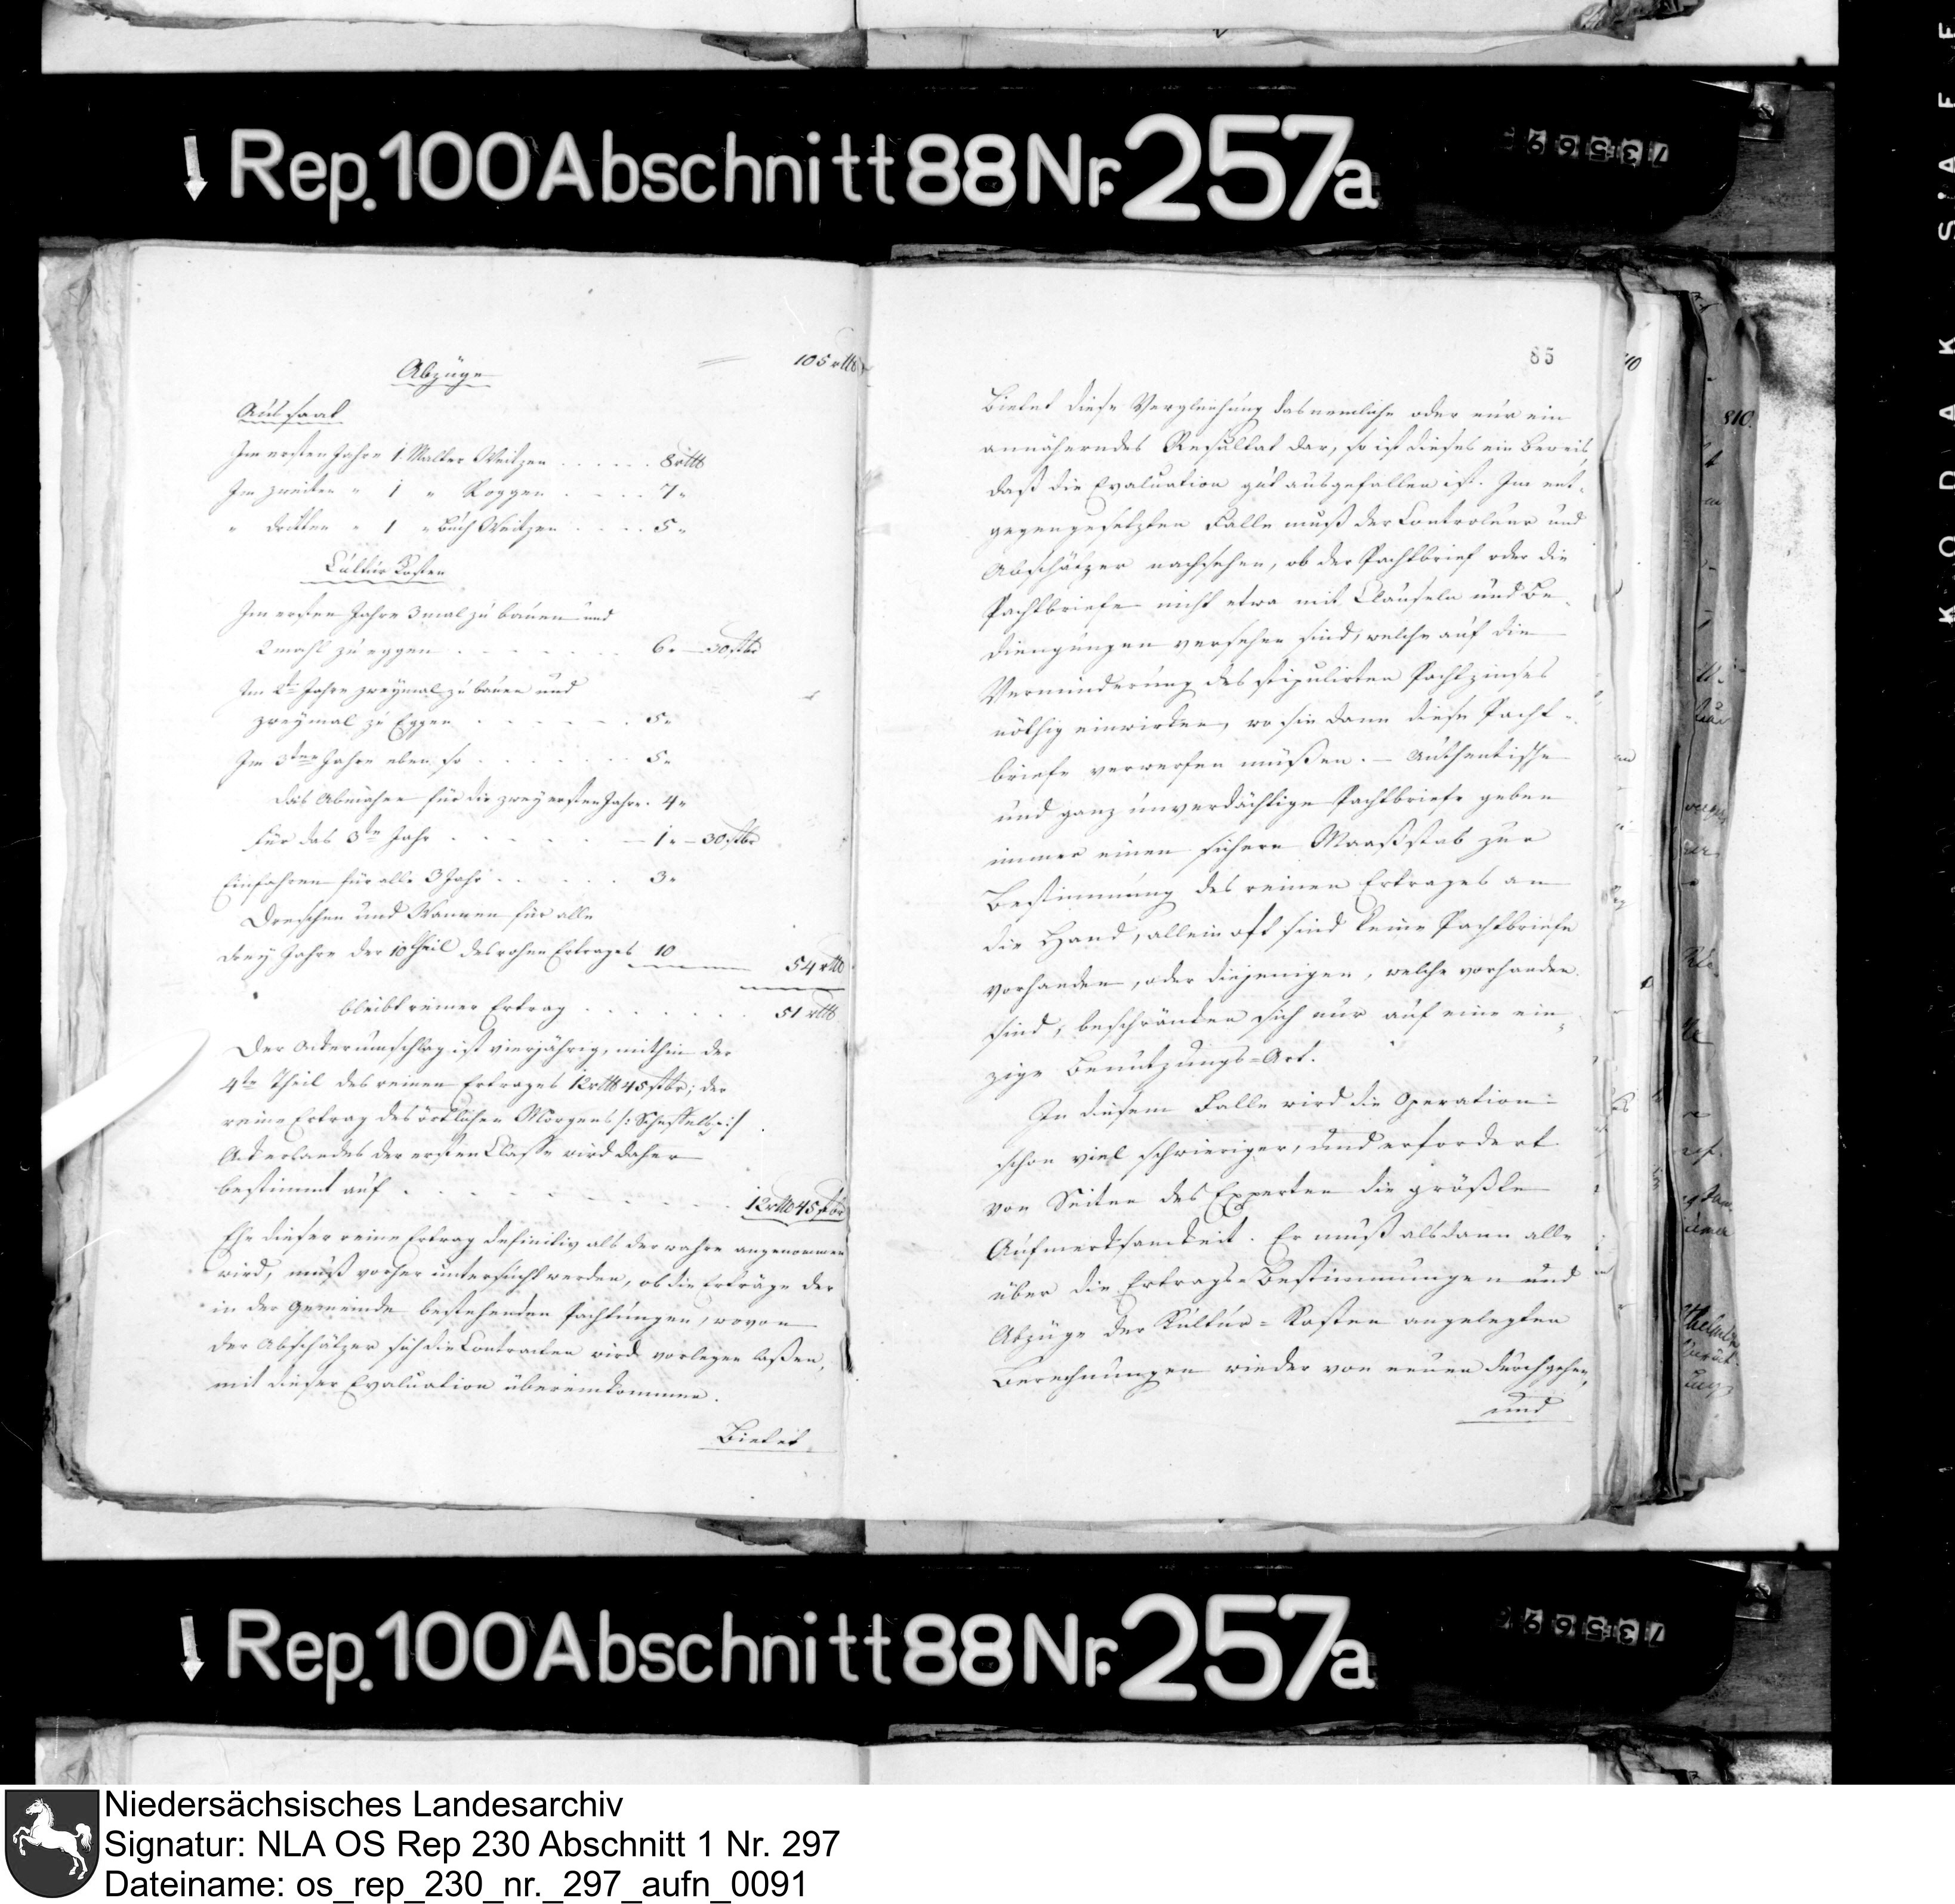 Rep. 100 Abschnitt 88 Nr. 257a
735697
105 rtlr
Abzüge
Aussaat
Im ersten Jahre 1. Malter Weitzen . . . . . . 8 rtlr
Im zweiten " 1 " Roggen . . . . 7 "
" dritten " 1 " Buch Weitzen . . . . 5 "
Cultur Kosten
Im ersten Jahre 3 mal zu bauen und
2 mahl zu eggen . . . . . . . 6 " — 30 stbr
Im 2ten Jahre zweymal zu bauen und
zweymal zu Eggen . . . . . . 5 "
Im 3ten Jahre eben so . . . . . . 5 "
das Abmähen für die zwey ersten Jahre . 4 "
für das 3te Jahr . . . . . . — 1 " — 30 stbr
Einfahren für alle 3 Jahr . . . . . 3 "
Dreschen und Wannen für alle
drey Jahre der 10 Theil des rohen Ertrages 10
54 rtlr
bleibt reiner Ertrag . . . . . . . 51 rtlr
Der Ackerumschlag ist vierjährig, mithin der
4te Theil des reinen Ertrages 12 rtlr 45 stbr; der
reine Ertrag des örtlichen Morgens /: Scheffels :/
Ackerlandes der ersten Classe wird daher
bestimmt auf . . . . . . . . . 12 rtlr 45 stbr
Ehe dieser reine Ertrag definitiv als der wahre angenommen
wird, muß vorher untersucht werden, ob die Erträge der
in der Gemeinde bestehenden Pachtungen, wovon
der Abschätzer sich die Contracten wird vorlegen laßen,
mit dieser Evaluation übereinkommen.
Bietet
85
Bietet diese Vergleichung das nemliche oder nur ein
annäherndes Resultat dar, so ist dieses ein Beweis,
daß die Evaluation gut ausgefallen ist. Im ent-
gegengesetzten Falle muß der Controleur und
Abschätzer nachsehen, ob der Pachtbrief oder die
Pachtbriefe nicht etwa mit Clauseln und Be-
dingungen versehen sind, welche auf die
Verminderung des stipulirten Pachtzinses
nöthig einwirken, wo sie dann diese Pacht-
briefe verwerfen müßen. — Authentische
und ganz unverdächtige Pachtbriefe geben
immer einen sichern Maaßstab zur
Bestimmung des reinen Ertrages an
die Hand, allein oft sind keine Pachtbriefe
vorhanden, oder diejenigen, welche vorhanden
sind, beschränken sich nur auf eine ein-
zige Benutzungs-Art.
In diesem Falle wird die Operation
schon viel schwieriger, und erfordert
von Seiten des Experten die größte
Aufmerksamkeit. Er muß alsdann alle
über die Ertrags-Bestimmungen und
Abzüge der Kultur-Kosten angelegten
Berechnungen wieder von neuen durchgehen,
und
810.
Rep. 100 Abschnitt 88 Nr. 257a
735696
KODAK SAFE
Niedersächsisches Landesarchiv
Signatur: NLA OS Rep 230 Abschnitt 1 Nr. 297
Dateiname: os_rep_230_nr._297_aufn_0091